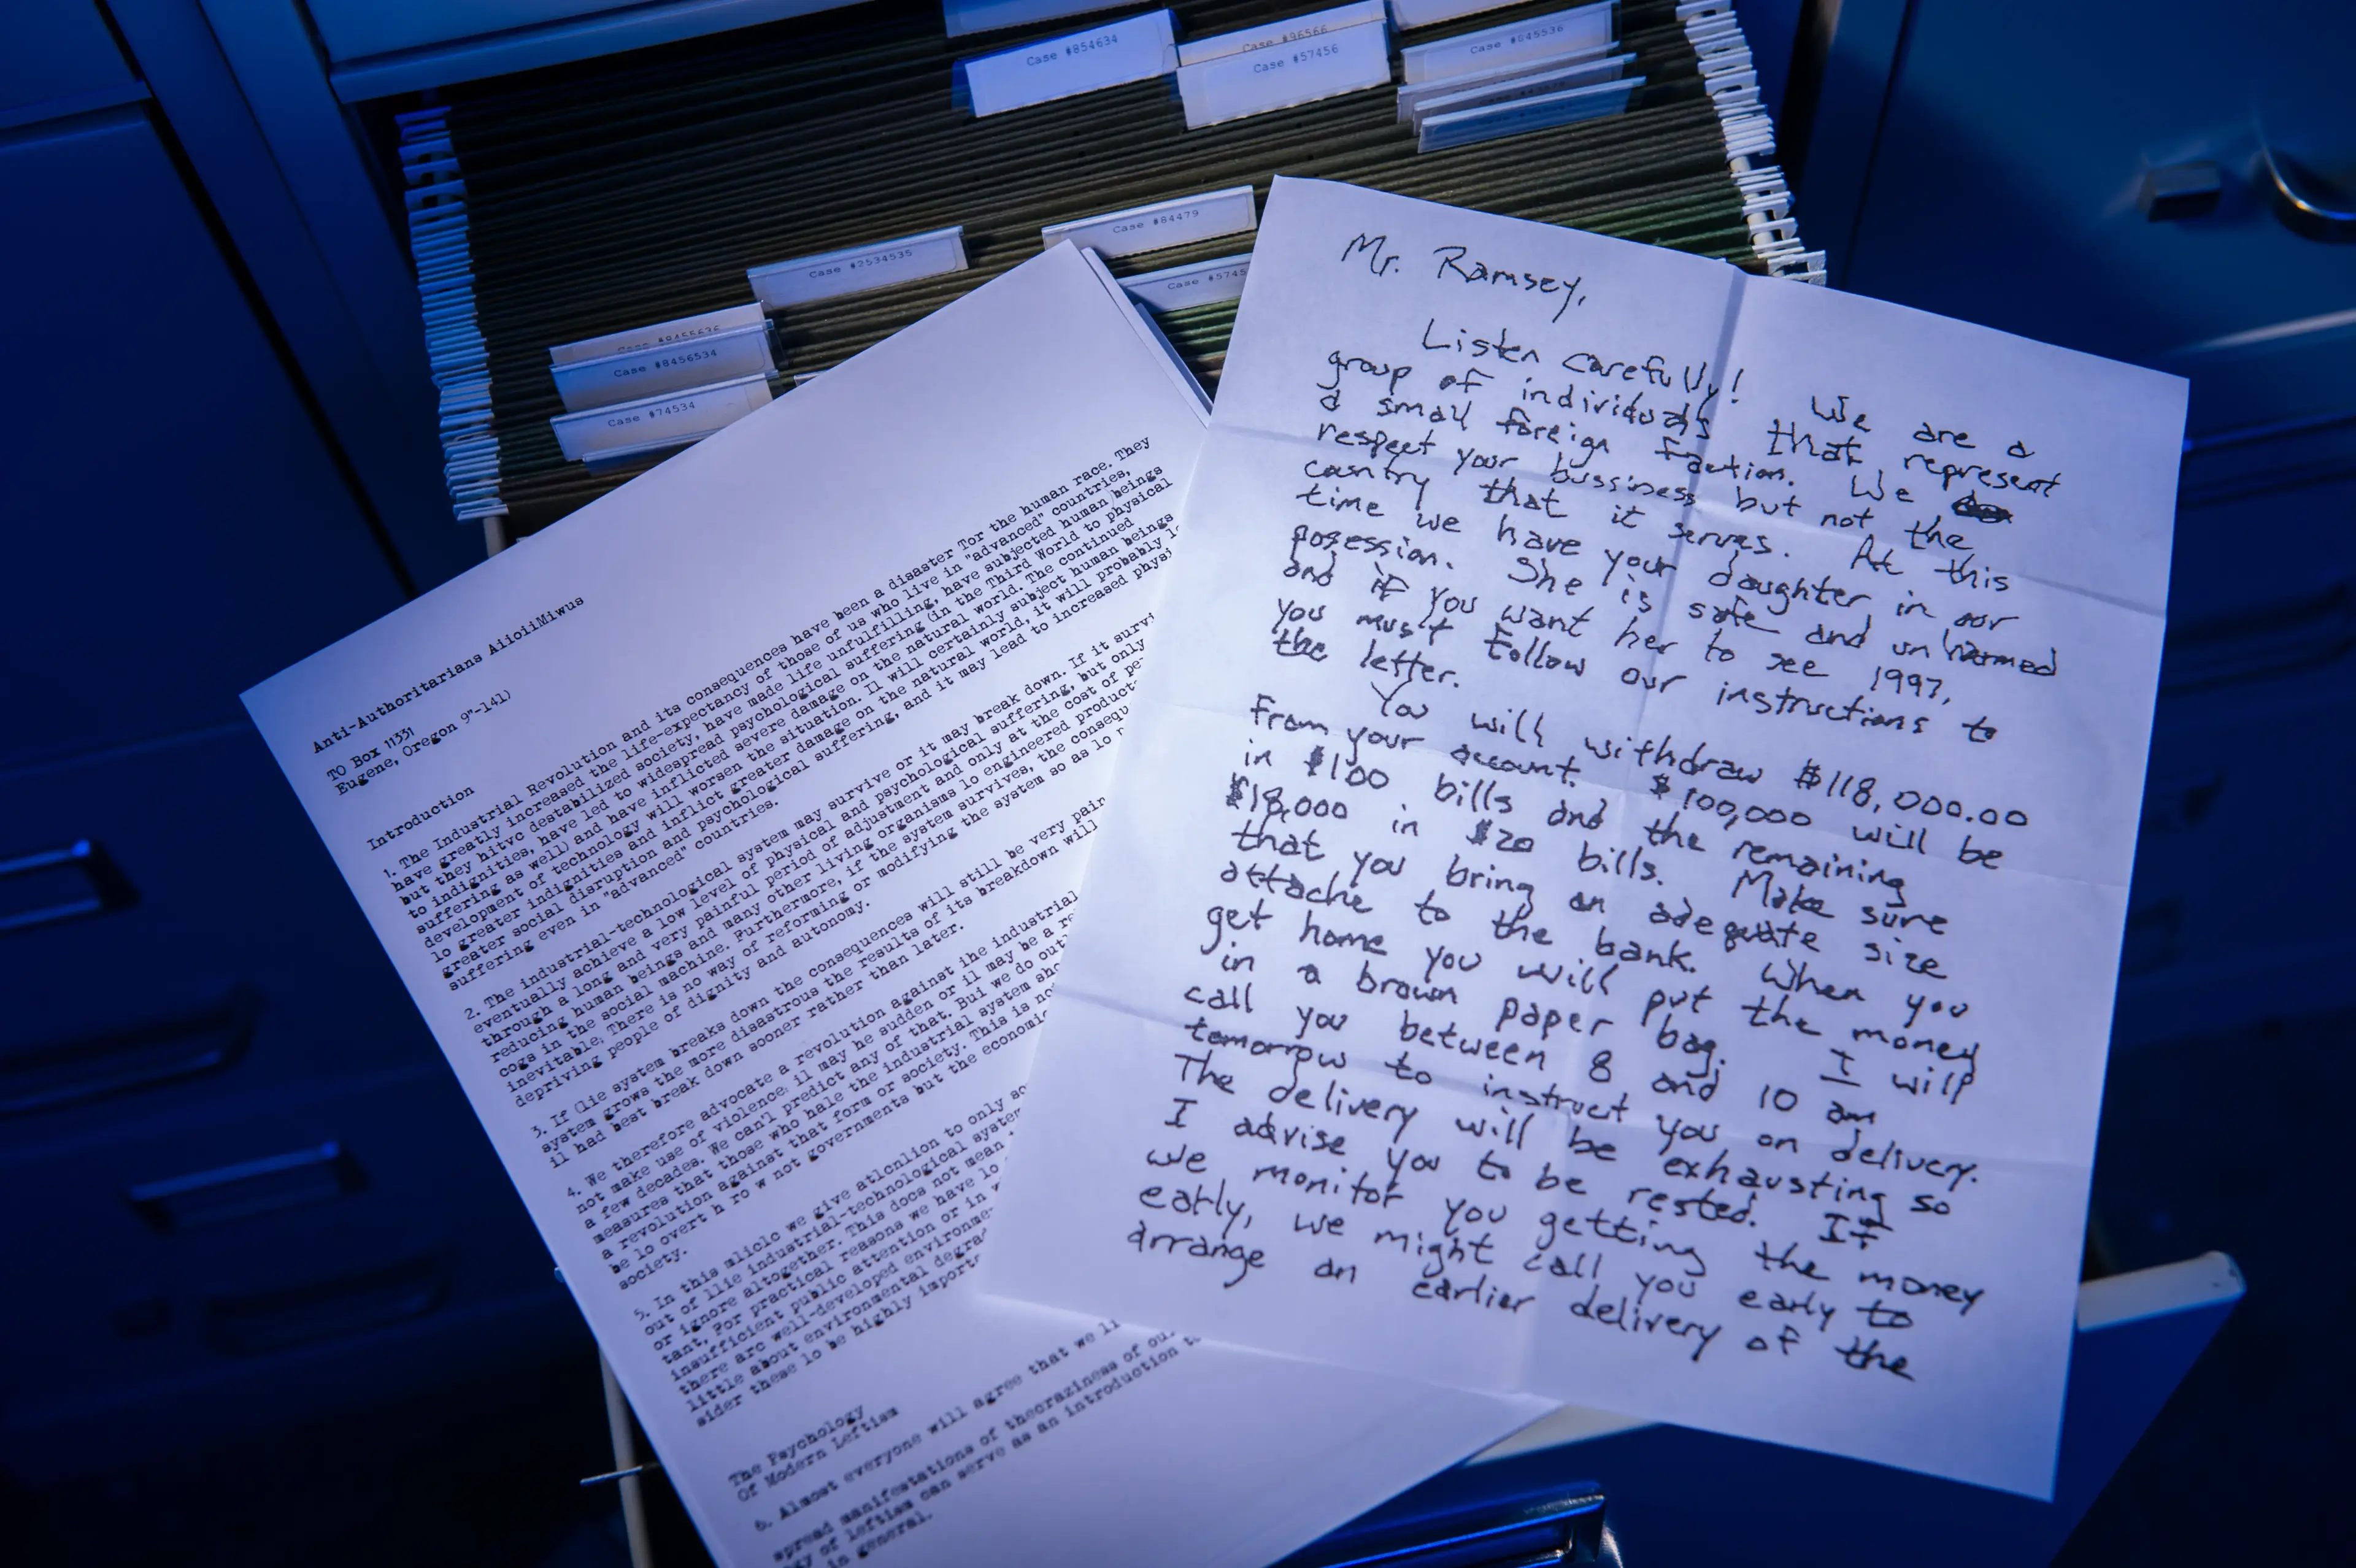 Case #854634
Case #96566
Case #57456
Case #845536
Case #84479
Case #2534535
Case #5745
Case #8456534
Case #74534
Anti-Authoritarians AiioiiMiwus
TO Box 11331
Eugene, Oregon 9"-141)
Introduction
1. The Industrial Revolution and its consequences have been a disaster Tor the human race. They
have greatly increased the life-expectancy of those of us who live in "advanced" countries,
but they hitvc destabilized society, have made life unfulfilling, have subjected human beings
to indignities, have led to widespread psychological suffering (in the Third World to physical
suffering as well) and have inflicted severe damage on the natural world. The continued
development of technology will worsen the situation. Il will certainly subject human beings
lo greater indignities and inflict greater damage on the natural world, it will probably
greater social disruption and psychological suffering, and it may lead to increased physi
suffering even in "advanced" countries.
2. The industrial-technological system may survive or it may break down. If it survi
eventually achieve a low level of physical and psychological suffering, but only
through a long and very painful period of adjustment and only at the cost of pe
reducing human beings and many other living organisms lo engineered product
cogs in the social machine. Furthermore, if the system survives, the consequ
inevitable; There is no way of reforming or modifying the system so as lo
depriving people of dignity and autonomy.
3. If (lie system breaks down the consequences will still be very pain
system grows the more disastrous the results of its breakdown will
il had best break down sooner rather than later.
4. We therefore advocate a revolution against ihe industrial
not make use of violence; il may he sudden or il may be a re
a few decades. We can'l predict any of that. Bui we do out
measures that those who hale the industrial system sho
a revolution against that form or society. This is no
be lo overt h ro w not governments but the economic
society.
5. In this mliclc we give atlcnlion to only so
out of llie industrial-technological system
or ignore altogether. This docs not mean
tant, For practical reasons we have lo
insufficient public attention or in
there arc well-developed environme
little about environmental degra
sider these lo be highly importa
The Psychology
Of Modern Leftism
6. Almost everyone will agree that we li
spread manifestations of thecraziness of ou
gy of leftism can serve as an introduction t
in general.
Mr. Ramsey,
Listen carefully! We are a
group of individuals that represent
a small foreign faction. We
respect your bussiness but not the
country that it serves. At this
time we have your daughter in our
posession. She is safe and unharmed
and if you want her to see 1997,
you must follow our instructions to
the letter.
You will withdraw $118,000.00
from your account. $100,000 will be
in $100 bills and the remaining
$18,000 in $20 bills. Make sure
that you bring an adequate size
attache to the bank. When you
get home you will put the money
in a brown paper bag. I will
call you between 8 and 10 am
tomorrow to instruct you on delivery.
The delivery will be exhausting so
I advise you to be rested. If
we monitor you getting the money
early, we might call you early to
arrange an earlier delivery of the